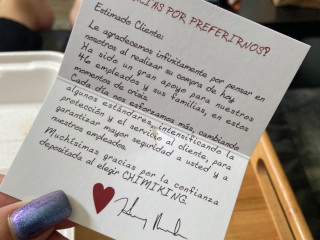 GRACIAS POR PREFERIRNOS!
Estimado Cliente:
Le agradecemos infinitamente por pensar en
nosotros al realizar su compra de hoy.
Ha sido un gran apoyo para nuestros
46 empleados y sus familias, en estos
momentos de crisis.
Cada día nos esforzamos más, cambiando
algunos estándares, intensificando la
protección y el servicio al cliente, para
garantizar mayor seguridad a usted y a
nuestros empleados.
Muchísimas gracias por la confianza
depositada al elegir CHIMIKING.